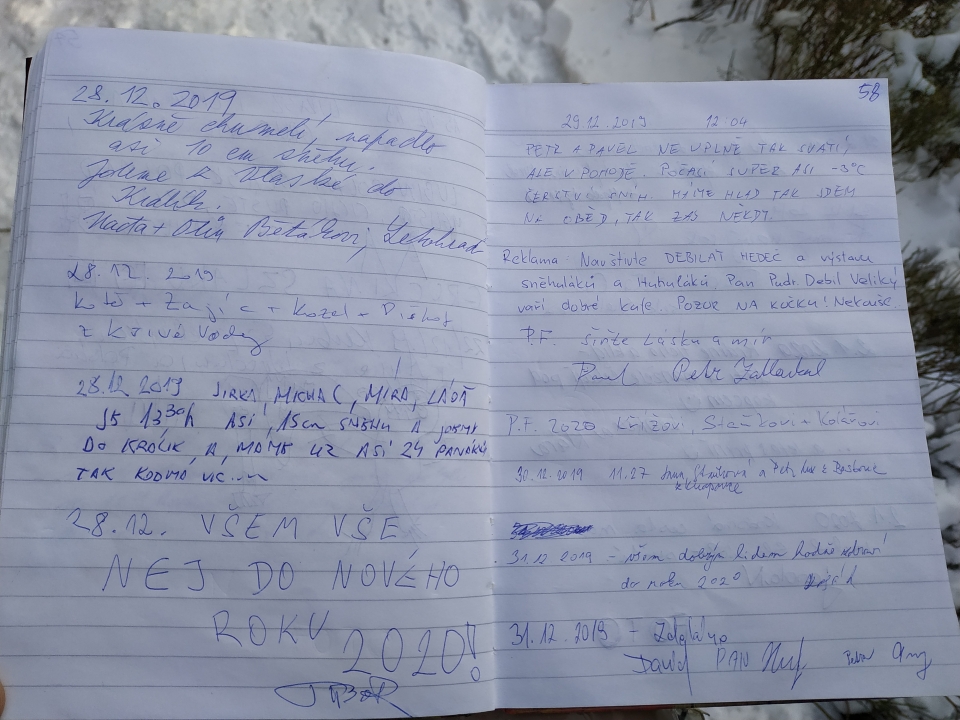 28.12.2019
Krásně chumelí, napadlo
asi 10 cm sněhu.
Jdeme z Vlaské do
Králík.
Naďa + Olin Betákovi, Letohrad
28.12. 2019
Kotě + Zajíc + Kozel +
z Křivé Vody
28.12 2019 JIRKA, MICHAL, MÍRA, LÁĎA
JE 13 30h ASI 15cm SNĚHU A JDEME
DO KRÁLÍK, A MÁME UŽ ASI 24 PANÁKŮ
TAK VÍC....
28.12. VŠEM VŠE
NEJ DO NOVÉHO
ROKU 2020!
58
29.12.2019 12.04
PETR A PAVEL NE ÚPLNĚ TAK SVATÍ,
ALE V POHODĚ. POČASÍ SUPER ASI -3°C
ČERSTVÝ SNÍH MÁME HLAD TAK JDEM
NA OBĚD, TAK ZAS NĚKDY.
Reklama: Navštivte DEBILÁT HEDEČ a výstavu
sněhuláků a Huhuláků. Pan Pudr. Debil Veliký
vaří dobré kafe. POZOR NA KOČKU! Nekouše.
P.F. šiřte lásku a mír
Pavel Petr
P.F. 2020 Křížovi, + Kolářovi
30.12.2019 11.27 a Petr z Boskovic
31.12 2019 - všem dobrým lidem hodně zdraví
do roku 2020
31.12.2019 -
David PAN Petr